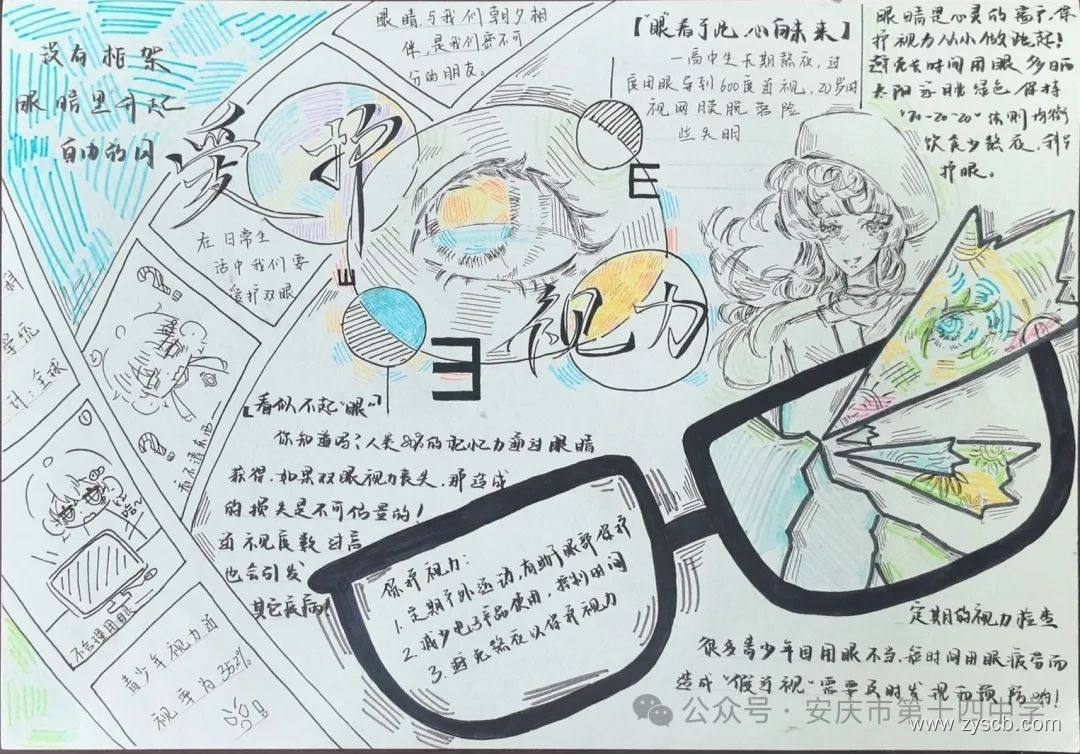 没有框架
眼睛里升起
自由的风
眼睛,与我们朝夕相
伴,是我们密不可
分的朋友。
【"眼"看于此,心向未来】
一高中生长期熬夜,过
度用眼导致600度近视,20岁时
视网膜脱落险
些失明
眼睛是心灵的窗户,保
护视力从小做起!
避免长时间用眼 多晒
太阳 多眺绿色 保持
"20-20-20"法则 均衡
饮食少熬夜,科学
护眼。
爱护
视力
E
E
E
在日常生
活中我们要
爱护双眼
计:全球
看不清东西
不合理用眼
青少年视力近
视率为
【看似不起"眼"】
你知道吗?人类80%的记忆力通过眼睛
获得,如果双眼视力丧失,那造成
的损失是不可估量的!
近视度数过高
也会引发
其它疾病!
保护视力:
1.定期户外运动,有助于眼部保护
2.减少电子产品使用,控制时间
3.避免熬夜以保护视力
定期的视力检查
很多青少年因用眼不当,短时间用眼疲劳而
造成"假近视"需要及时发现和预防哟!
公众号·安庆市第十四中学
www.zyscb.com